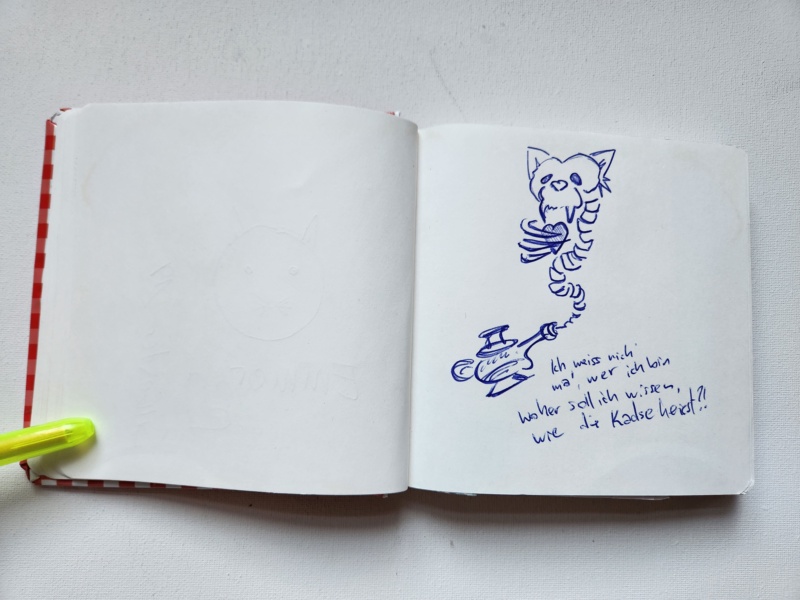 Ich weiss nich'
ma', wer ich bin
woher soll ich wissen,
wie die Kadse heist?!